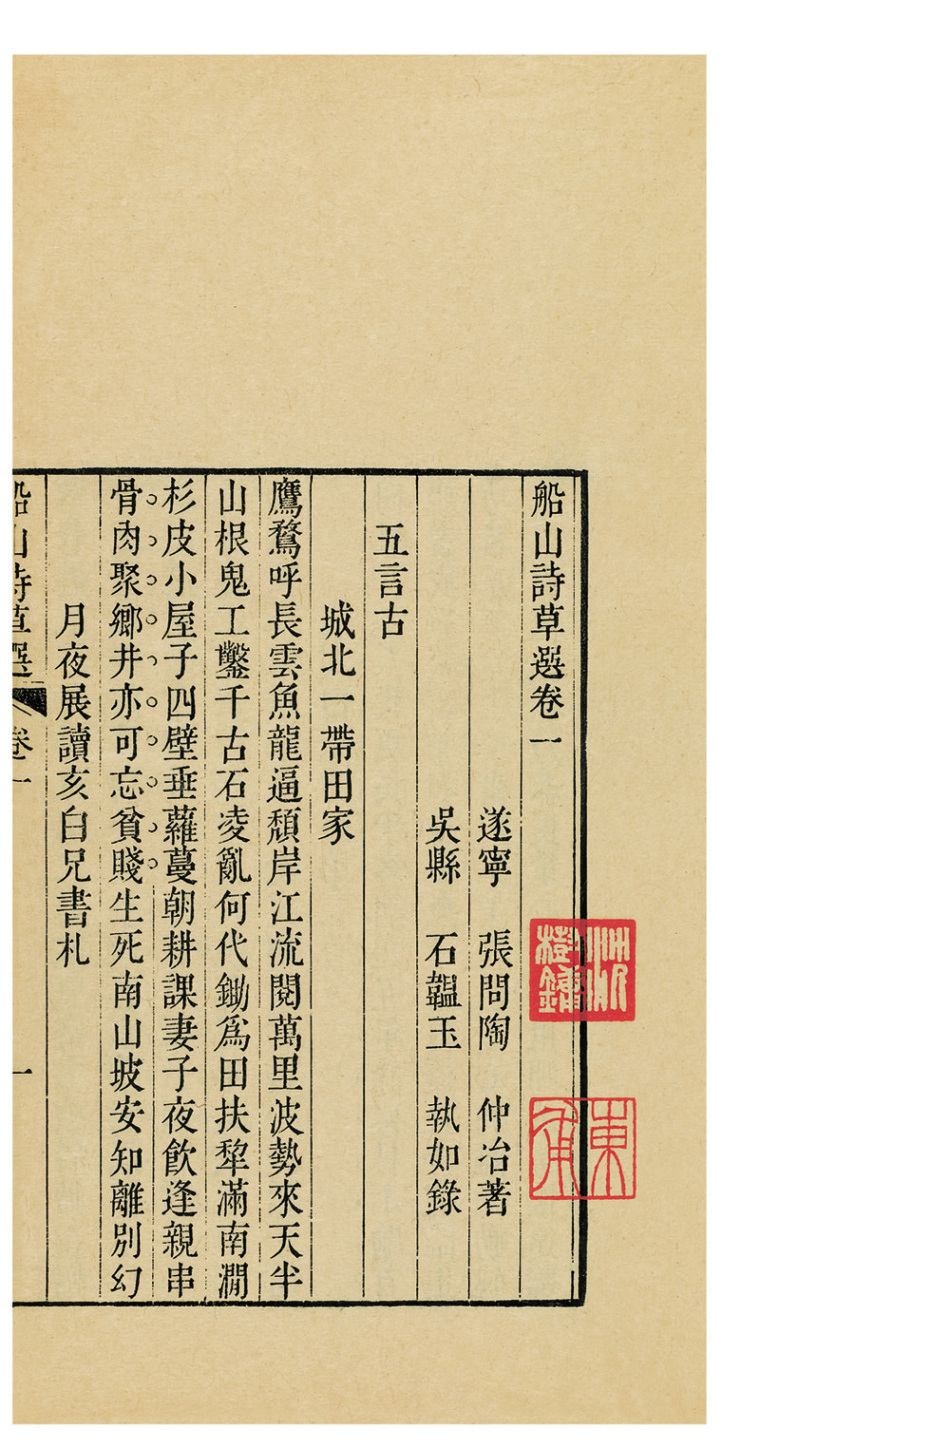 船山詩草選卷一
遂寧　張問陶　仲冶著
吳縣　石韞玉　執如錄
五言古
城北一帶田家
鷹鶩呼長雲魚龍逼頹岸江流閱萬里波勢來天半
山根鬼工鑿千古石凌亂何代鋤爲田扶犂滿南澗
杉皮小屋子四壁垂蘿蔓朝耕課妻子夜飮逢親串
骨肉聚鄉井亦可忘貧賤生死南山坡安知離別幻
月夜展讀亥白兄書札
船山詩草選　卷一　一
東甫